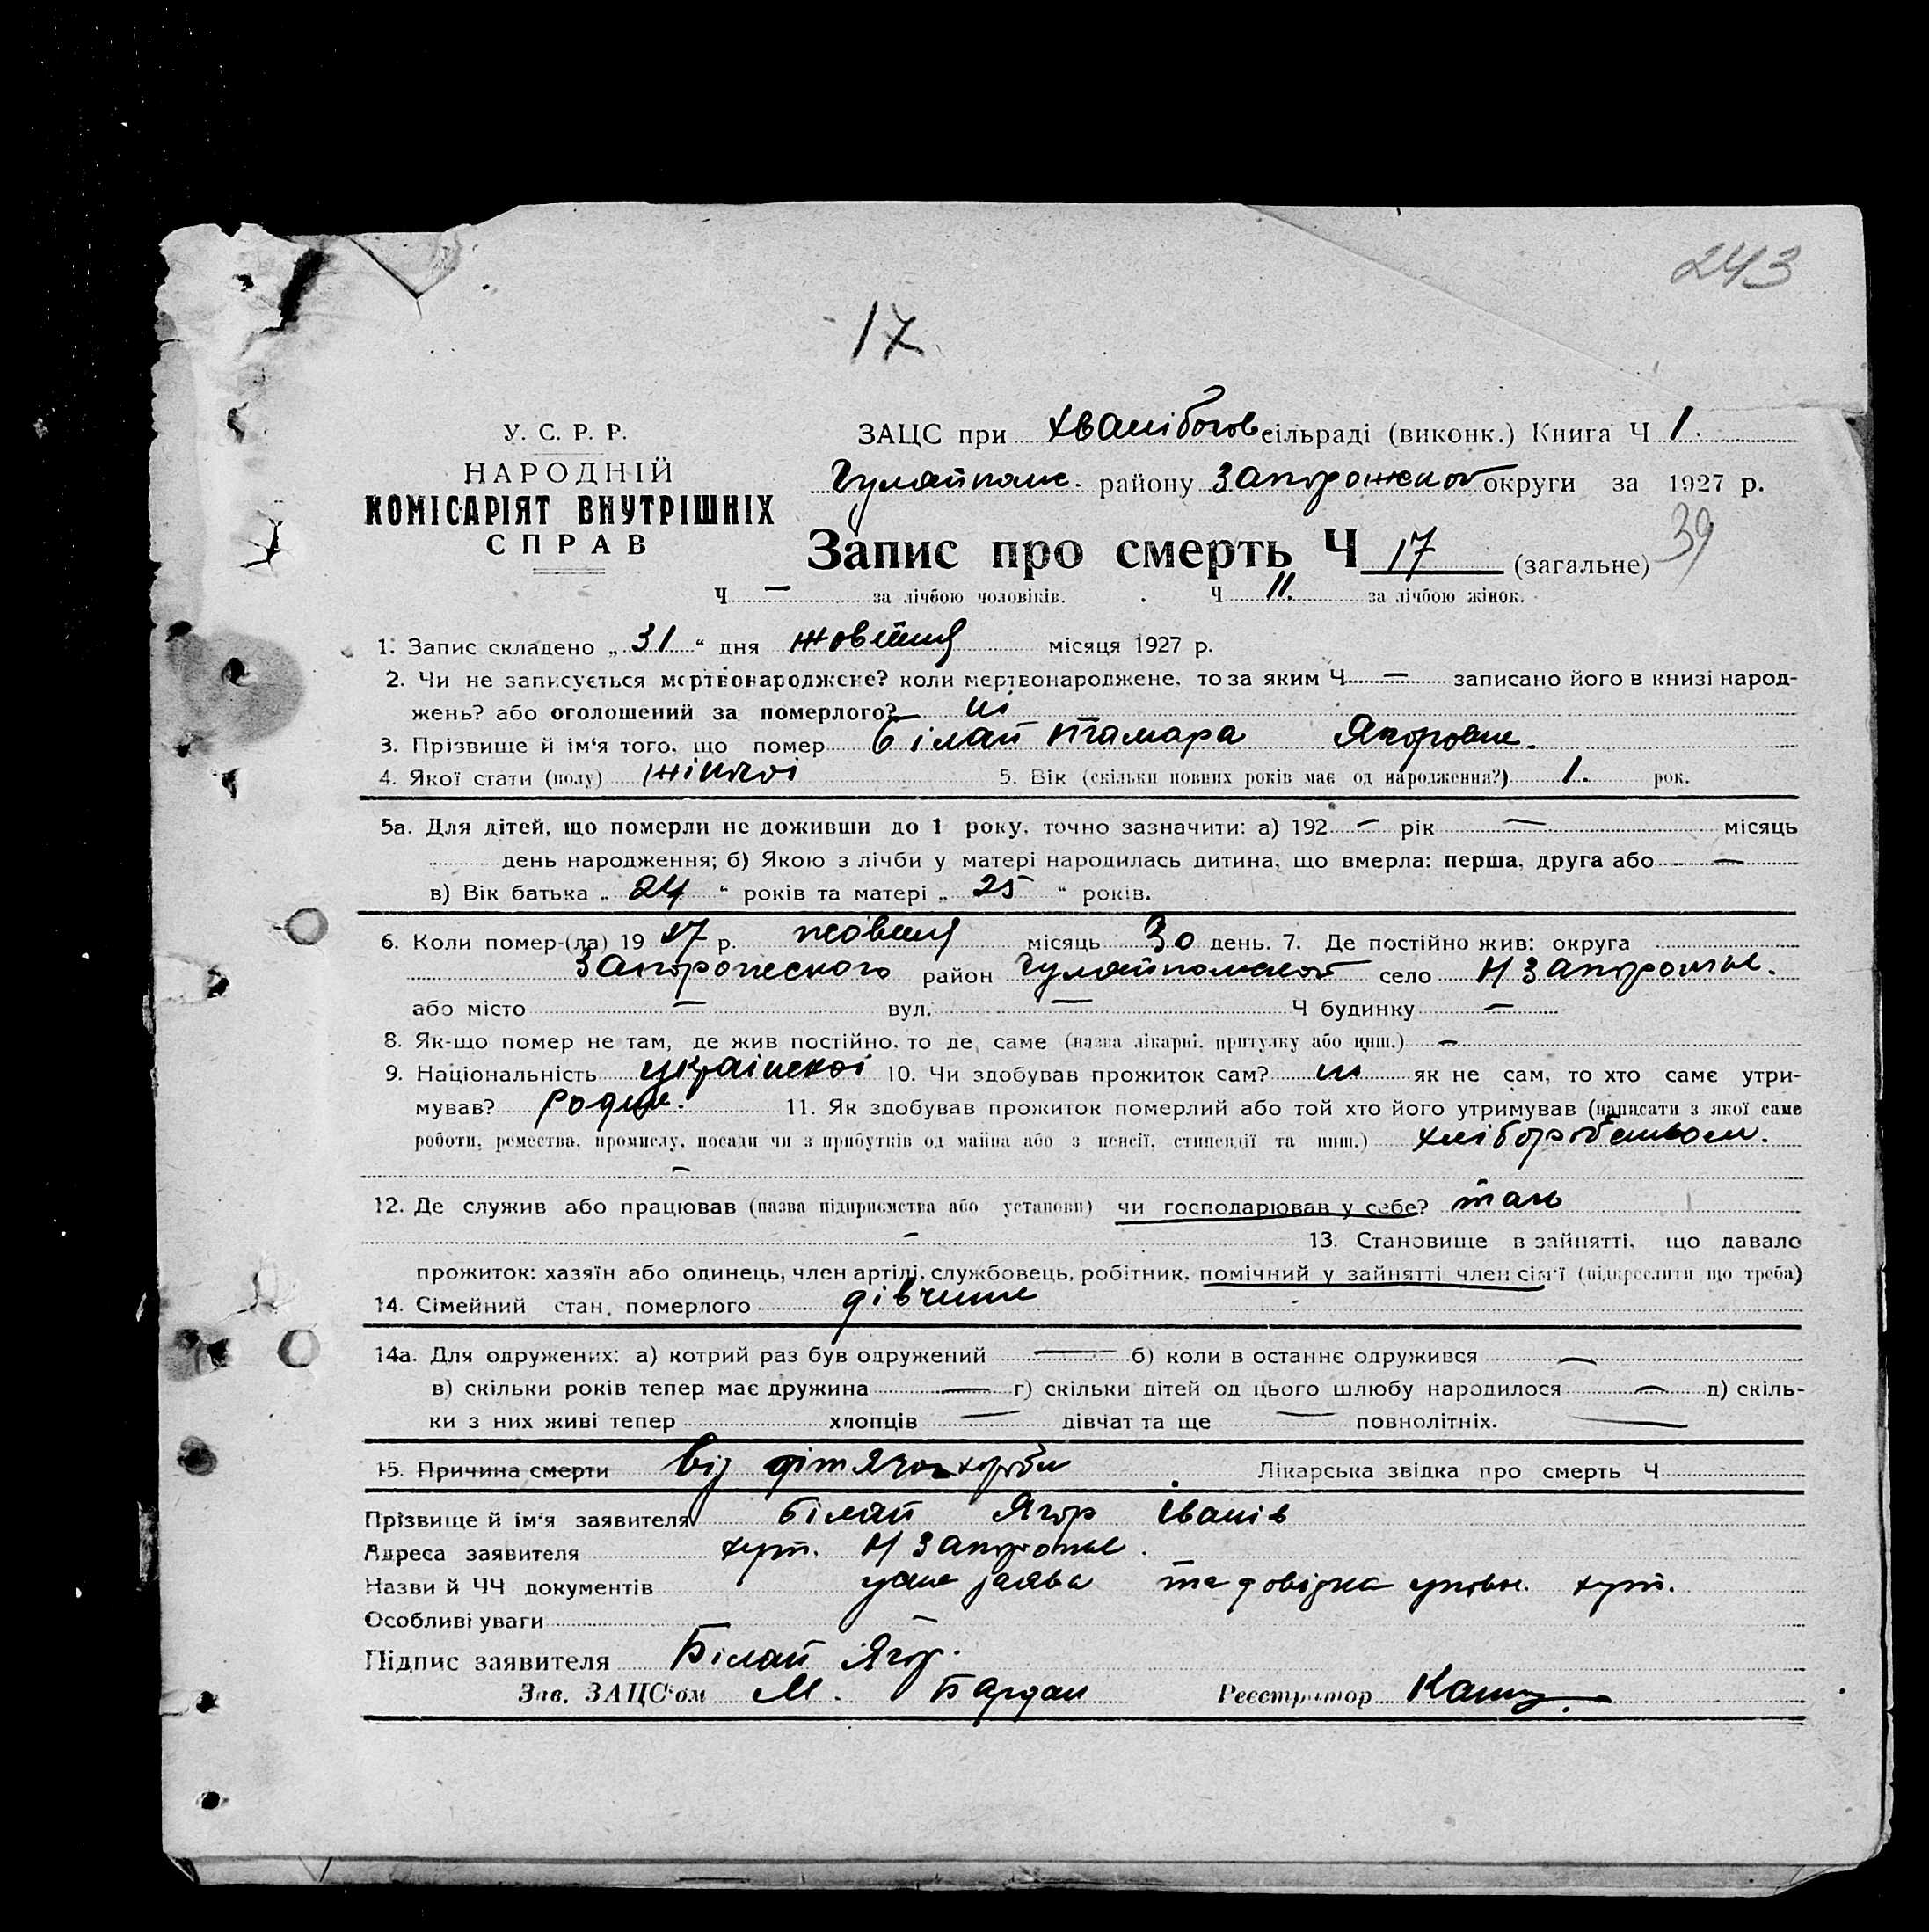 243
17
У. С. Р. Р.
НАРОДНІЙ
КОМІСАРІЯТ ВНУТРІШНІХ
СПРАВ
ЗАЦС при Хвалібогов сільраді (виконк.) Книга Ч 1.
Гуляйполс. району Запорожской округи за 1927 р.
39
Запис про смерть Ч 17 (загальне)
Ч — за лічбою чоловіків. Ч 11. за лічбою жінок.
1. Запис складено „ 31 “ дня жовтня місяця 1927 р.
2. Чи не записується мертвонароджене? коли мертвонароджене, то за яким Ч — записано його в книзі народ-
жень? або оголошений за померлого? ні
3. Прізвище й ім‘я того, що помер Білай Тамара Ягоровна.
4. Якої стати (полу) жіночої 5. Вік (скільки повних років має од народження?) 1. рок.
5а. Для дітей, що померли не доживши до 1 року, точно зазначити: а) 192 — рік — місяць
день народження; б) Якою з лічби у матері народилась дитина, що вмерла: перша, друга або —
в) Вік батька „ 24 “ років та матері „ 25 “ років.
6. Коли помер-(ла) 19 27 р. жовтня місяць 30 день. 7. Де постійно жив: округа
Запорожского район Гуляйпольской село Н Запорожье.
або місто — вул. — Ч будинку —
8. Як-що помер не там, де жив постійно, то де, саме (назва лікарні, притулку або инш.) —
9. Національність української 10. Чи здобував прожиток сам? ні як не сам, то хто саме утри-
мував? Родит. 11. Як здобував прожиток померлий або той хто його утримував (написати з якої саме
роботи, ремества, промислу, посади чи з прибутків од майна або з пенсії, стипендії та инш.) хліборобством.
—
12. Де служив або працював (назва підприємства або установи) чи господарював у себе? так
— 13. Становище в зайнятті, що давало
прожиток: хазяїн або одинець, член артілі, службовець, робітник, помічний у зайнятті член сім‘ї (підкреслити що треба)
14. Сімейний стан, померлого дівчина
14а. Для одружених: а) котрий раз був одружений — б) коли в останнє одружився —
в) скільки років тепер має дружина — г) скільки дітей од цього шлюбу народилося — д) скіль-
ки з них живі тепер хлопців — дівчат та ще — повнолітніх. —
15. Причина смерти Від дітячої хороби Лікарська звідка про смерть Ч
Прізвище й ім‘я заявителя Білай Ягор Іванів
Адреса заявителя хут. Н Запорожье.
Назви й ЧЧ документів усна заява та довідка уповн. хут.
Особливі уваги —
Підпис заявителя Білай Ягор.
Зав. ЗАЦС‘ом М. Бардаш Реєстратор